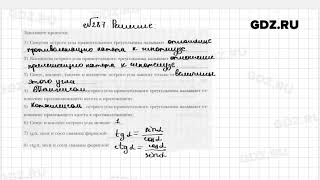 GDZ.RU
№287. Решение
Заполните пропуски.
1) Синусом острого угла прямоугольного треугольника называют отношение
противолежащего катета к гипотенузе
2) Косинусом острого угла прямоугольного треугольника называют отношение
прилежащего катета к гипотенузе
3) Синус, косинус, тангенс и котангенс острого угла зависят только от величины
этого угла
4) Тангенсом острого угла прямоугольного треугольника называют от-
ношение противолежащего катета к прилежащему.
5) Котангенсом острого угла прямоугольного треугольника называют от-
ношение прилежащего катета к противолежащему.
6) Синус и косинус острого угла меньше 1
7) tg α, sin α и cos α связаны формулой tg α = sin α / cos α
8) ctg α, sin α и cos α связаны формулой ctg α = cos α / sin α